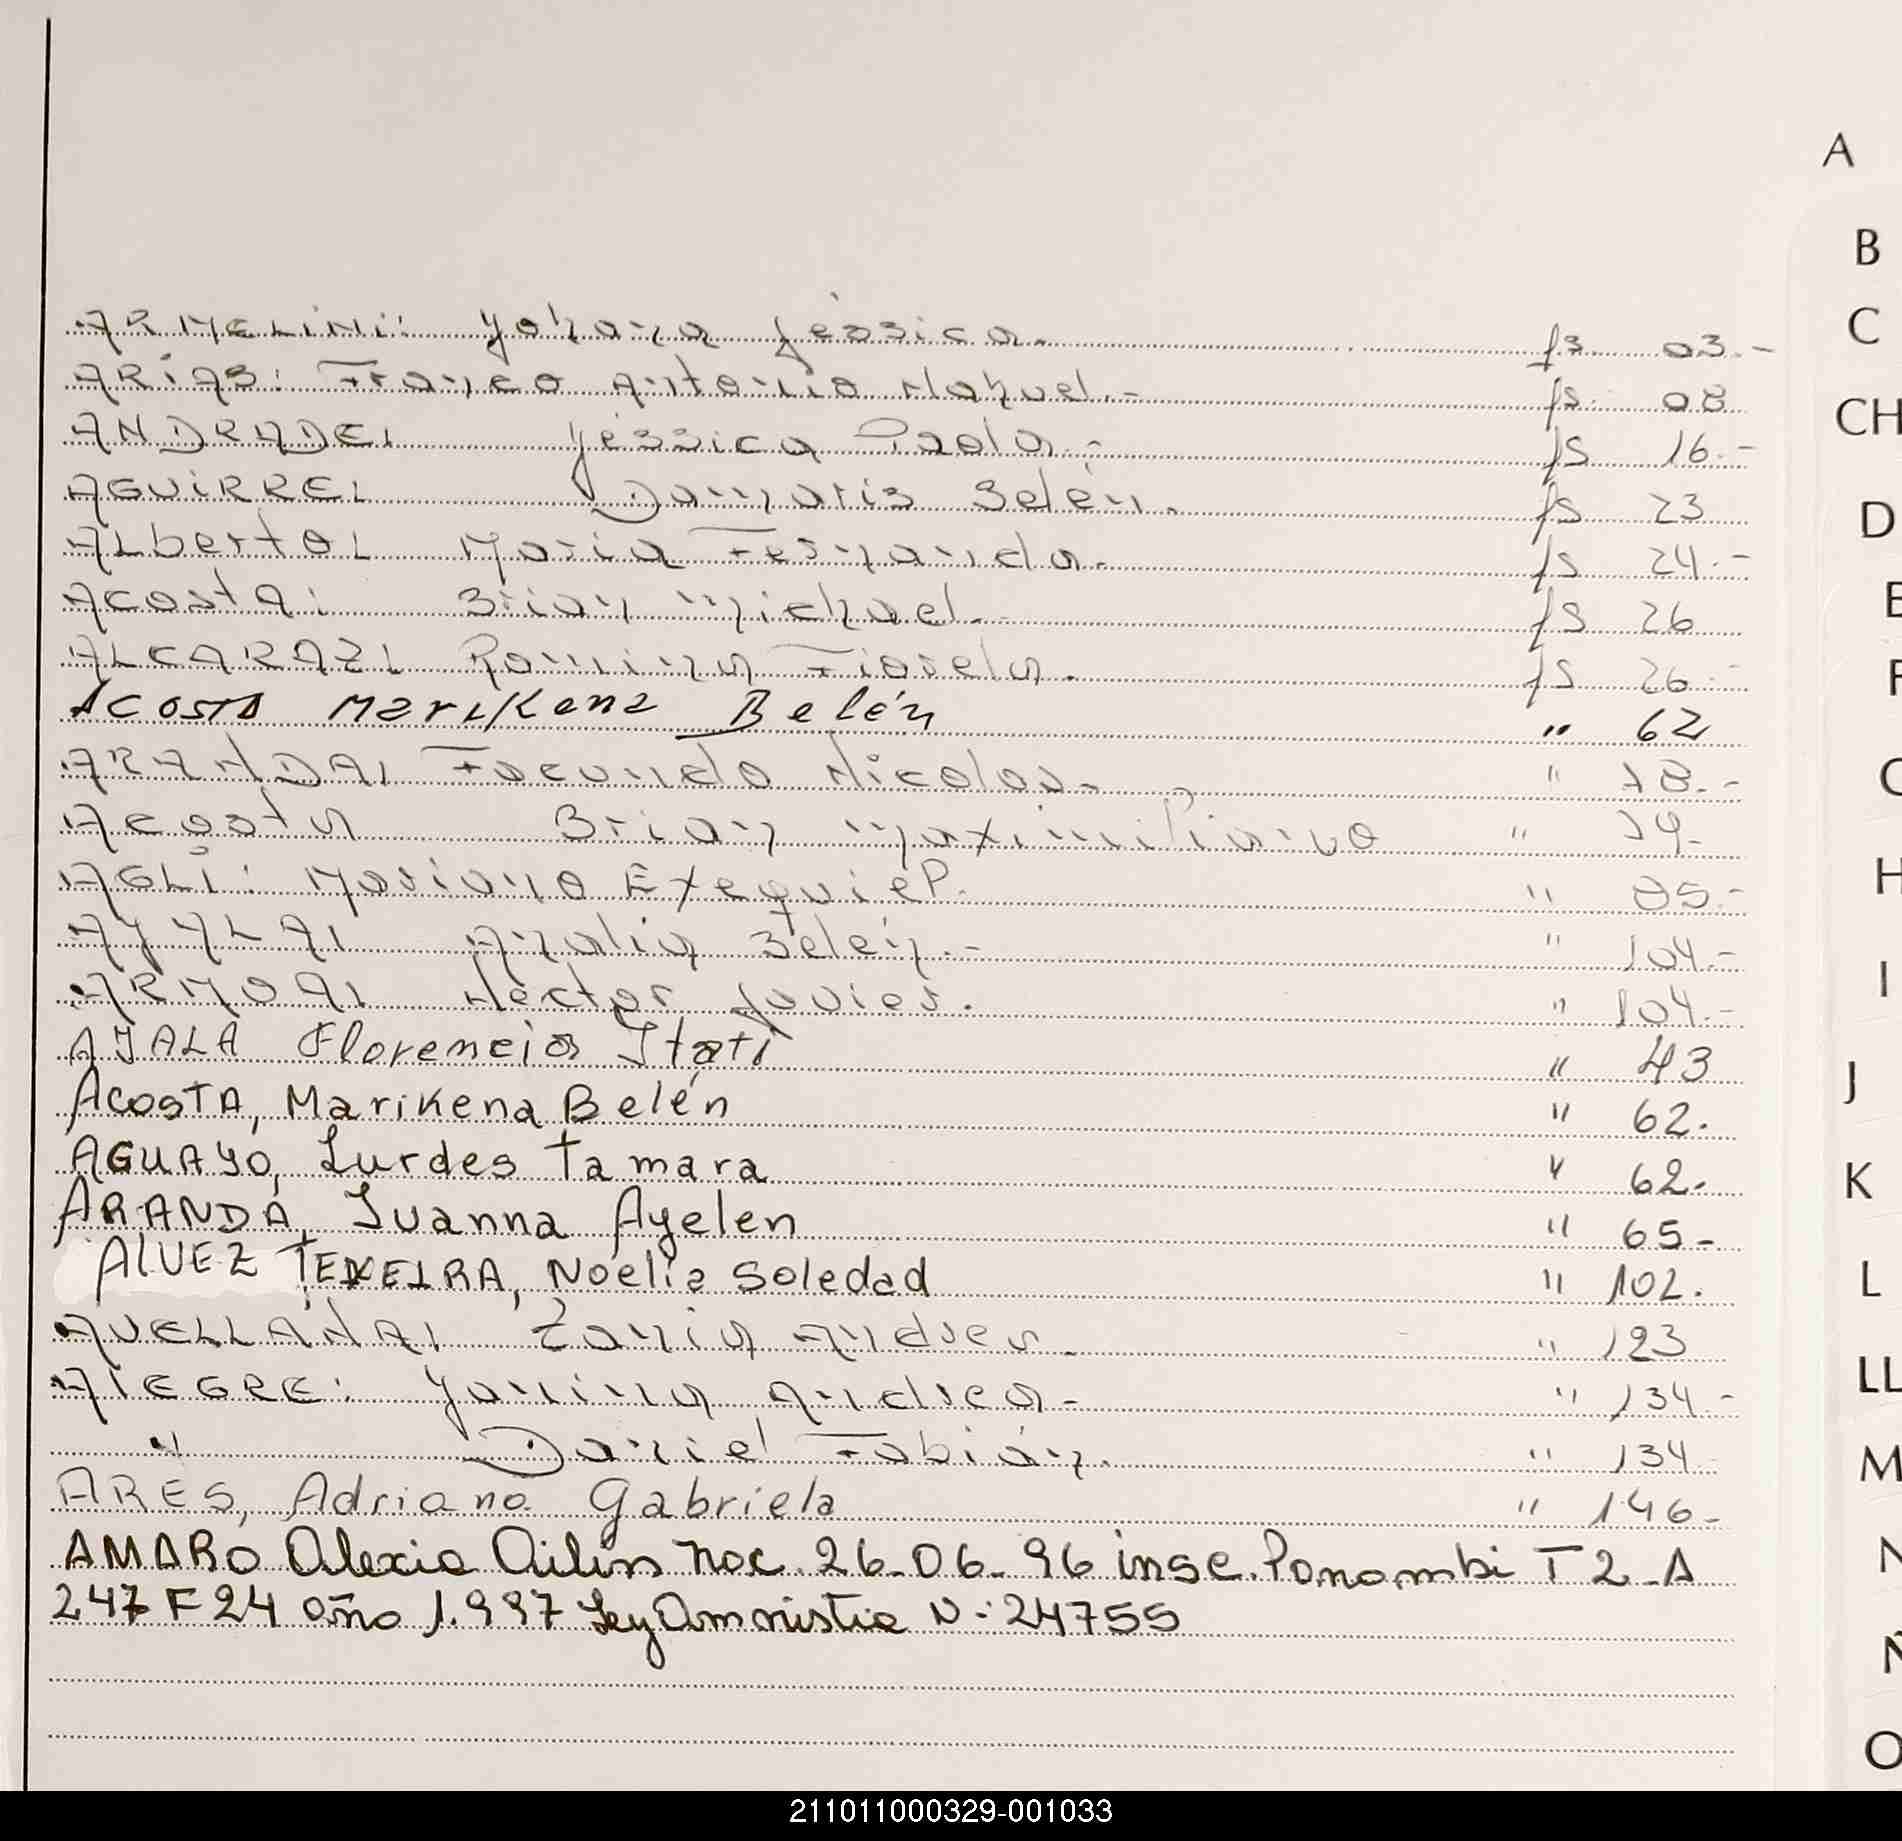 ARMELINI: Yohana Jéssica. fs 03.-
ARIAS: Franco Antonio Nahuel.- fs. 08
ANDRADE: Yéssica Paola.- fs 16.-
AGUIRRE: Damaris Belén. fs 23
ALbertO: Maria Fernanda. fs 24.-
Acosta: Brian Michael.- fs 26
ALCARAZ: Romina Fiorela. fs 26.-
Acosta Marikena Belén " 62
ARANDA: Facundo Nicolas. " 78.-
Acosta Brian Maximiliano "
AGLI: Mariano Exequiel. " 95.-
AYALA: Analia Belén.- " 104.-
ARMOA: Héctor Javier. " 104.-
AJALA Florencia Itatí " 43
ACOSTA, Marikena Belén " 62.
AGUAYO, Lurdes Tamara " 62.
ARANDA, Juanna Ayelen " 65-
ALVEZ TEXEIRA, Noelia Soledad " 102.
AVELLANA: Tania Andrea. " 123
AlEGRE: Yanina Andrea- " 134-
" Daniel Fabián. " 134-
ARES, Adriana Gabriela " 146-
AMARO Alexia Ailin Nac. 26-06-96 insc. Panambi T 2-A
247 F 24 año 1.997 Ley Amnistia N: 24755
A
B
C
CH
D
E
F
G
H
I
J
K
L
LL
M
N
Ñ
O
211011000329-001033